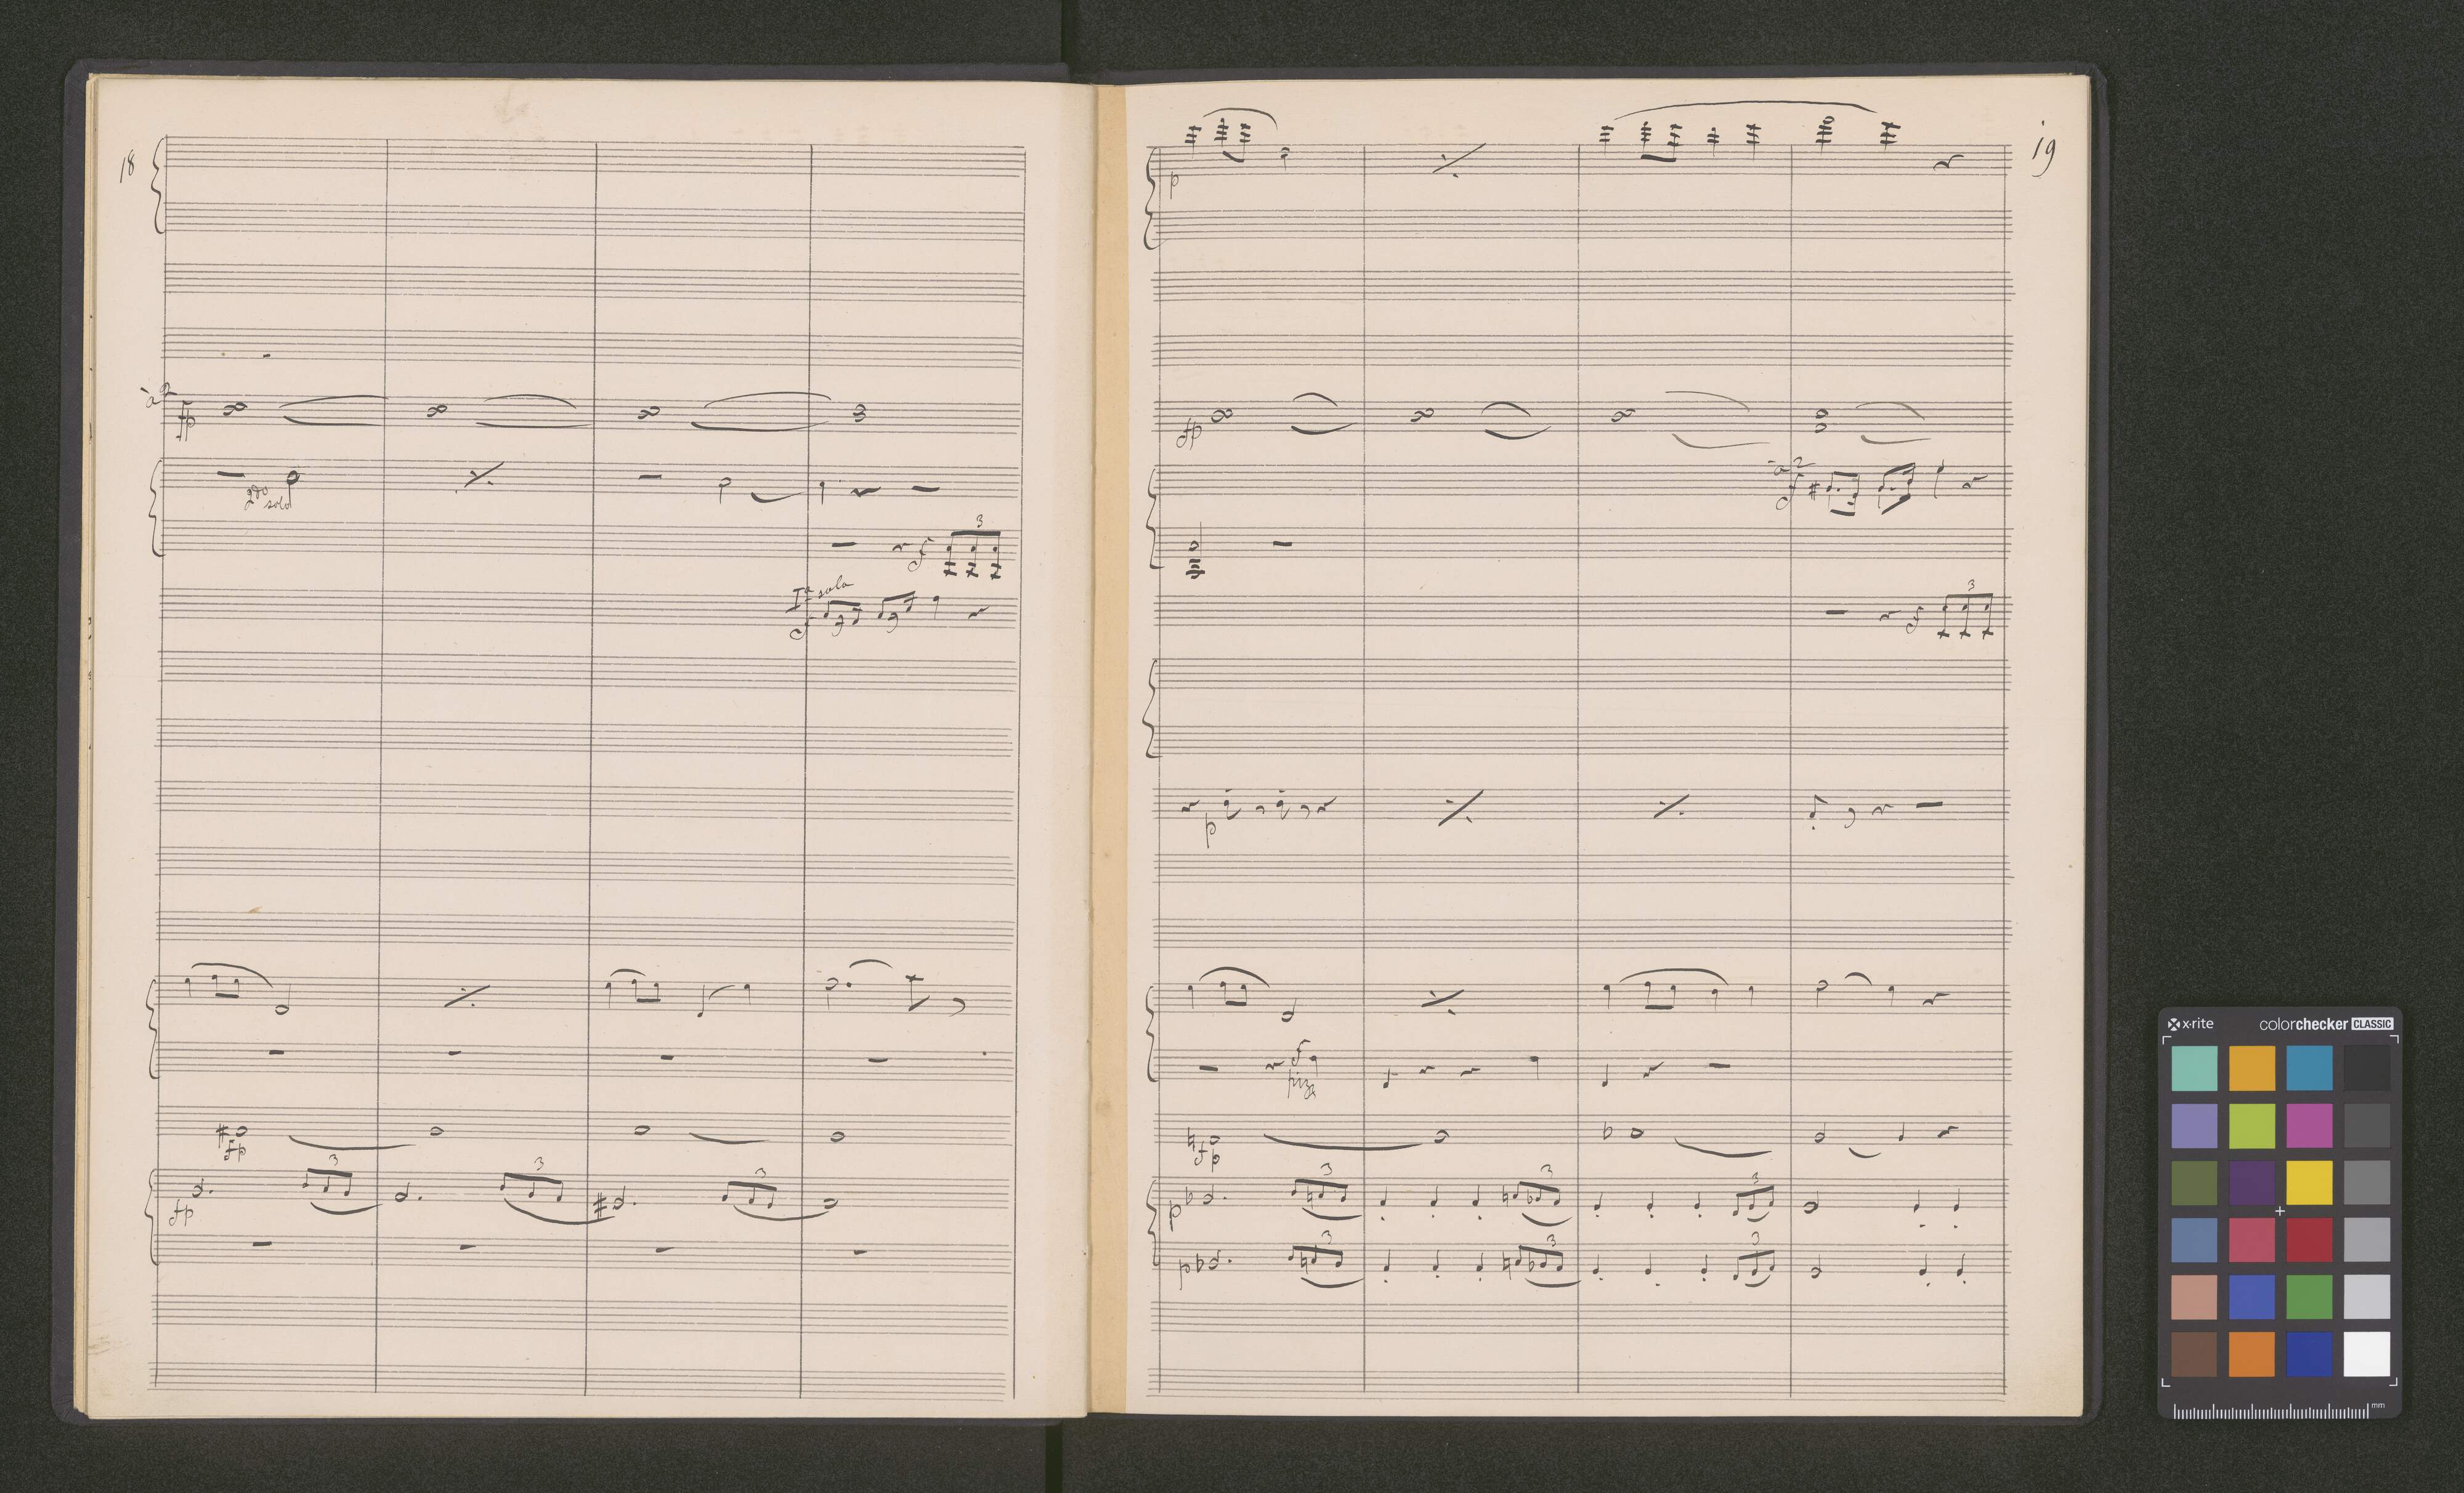 18
à 2
fp
2do
solo
3
f
Iª solo
f
fp
3
3
3
fp
19
p
fp
à 2
f
3
f
p
f
pizz
fp
3
3
3
p
3
3
3
p
x-rite
colorchecker CLASSIC
mm